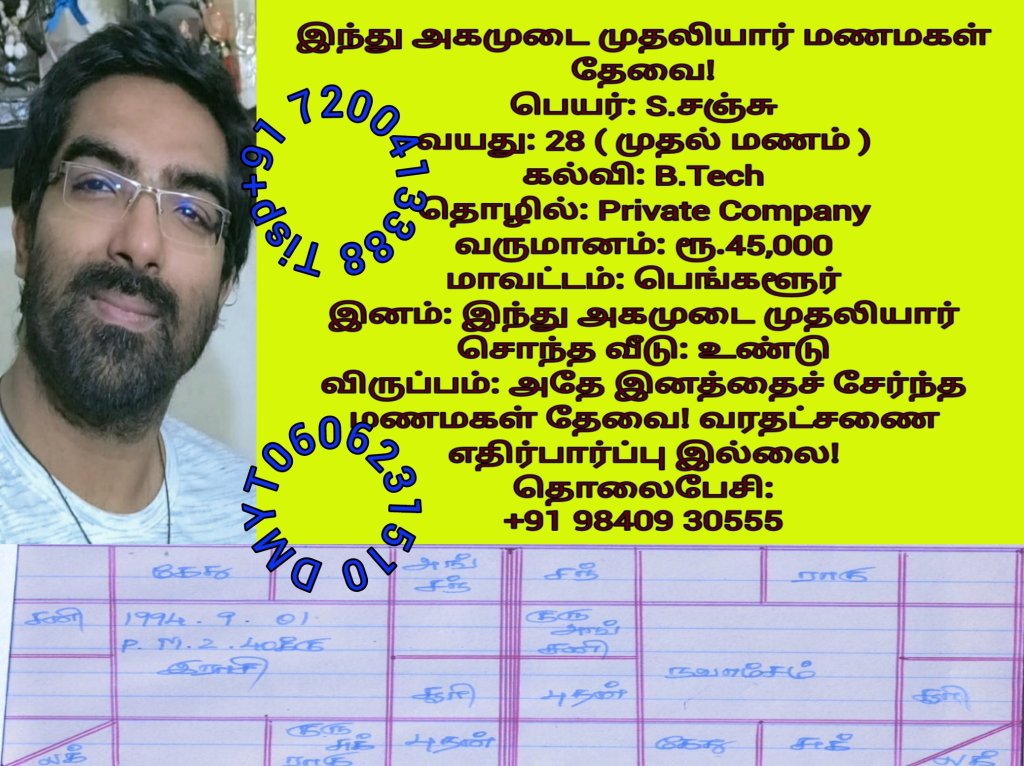 இந்து அகமுடை முதலியார் மணமகள்
தேவை!
பெயர்: S.சஞ்சு
வயது: 28 ( முதல் மணம் )
கல்வி: B.Tech
தொழில்: Private Company
வருமானம்: ரூ.45,000
மாவட்டம்: பெங்களூர்
இனம்: இந்து அகமுடை முதலியார்
சொந்த வீடு: உண்டு
விருப்பம்: அதே இனத்தைச் சேர்ந்த
மணமகள் தேவை! வரதட்சணை
எதிர்பார்ப்பு இல்லை!
தொலைபேசி:
+91 98409 30555
Tisp+91 7200413388
DMYT0606231510
கேது
சந்
சந்
ராகு
சனி
1994 . 9 . 01
P. M. 2 . 40க்கு
இராசி
குரு
சனி
நவாம்சம்
புதன்
குரு
சுக்
ராகு
புதன்
கேது
சுக்
லக்
லக்